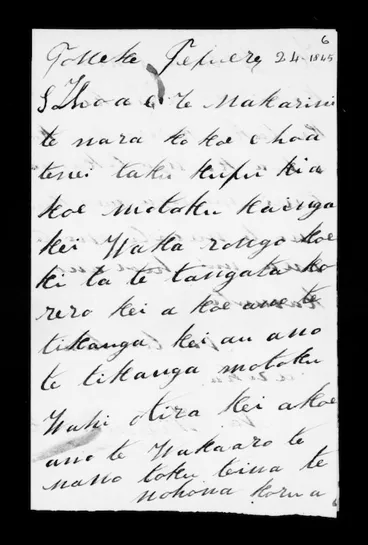 6
Pepuere 24 1845
E Hoa e Te Makarini
te nara ko koe e hoa
tenei taku kupu kia
koe motoku kainga
kei Waka rongo koe
ki ta te tangata ko
rero kei a koe ano te
tikanga kei au ano
te tikanga motoku
Wahi otira kei akoe
ano te Wakaaro te
nano toku teina te
nohona korua